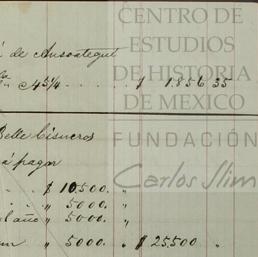 CENTRO DE
ESTUDIOS
DE HISTORIA
DE MEXICO
FUNDACIÓN
Carlos Slim
de Ansoategui
$ 1.856 35
Belle Cisneros
á pagar
$ 10,500. "
" 5000. "
al año " 5000. "
" 5000 " $ 25,500 "